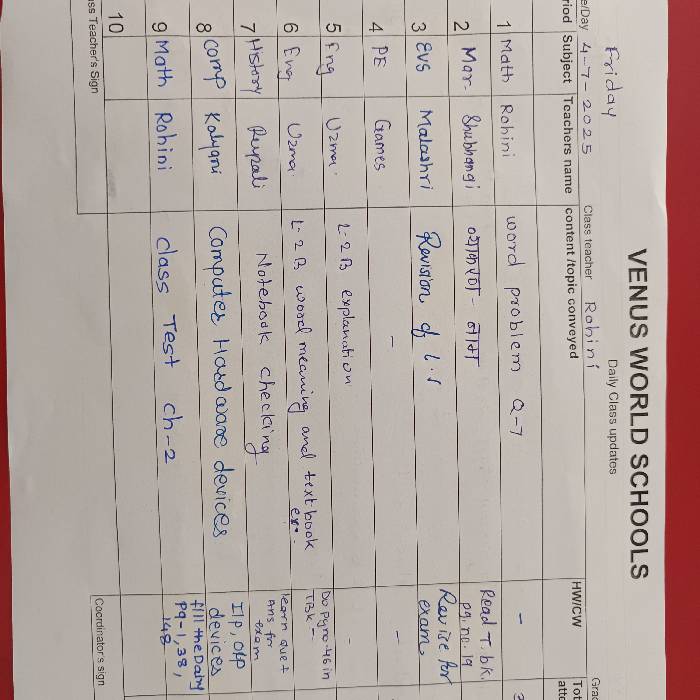 VENUS WORLD SCHOOLS
Daily Class updates
Friday
e/Day 4-7-2025 Class teacher Rohini Grad
riod Subject Teachers name content /topic conveyed HW/CW Tot
atte
1 Math Rohini word problem Q-7 -
2 Mar. Shubhangi व्याकरण - Read T.bk. pg.no.19
3 EVS Malashri Revision of L.1 Revise for exam.
4 PE Games - -
5 Eng Uzma. L-2 B explanation -
6 Eng Uzma. L-2 B word meaning and textbook ex-. Do pg no-46 in TBK-
7 History Rupali Notebook checking learn que + Ans for exam
8 Comp Kalyani Computer Hardware devices I/p, O/p devices
9 Math Rohini class Test ch-2 fill the Dairy pg-1,38, 148
10
ass Teacher's Sign Coordinator's sign